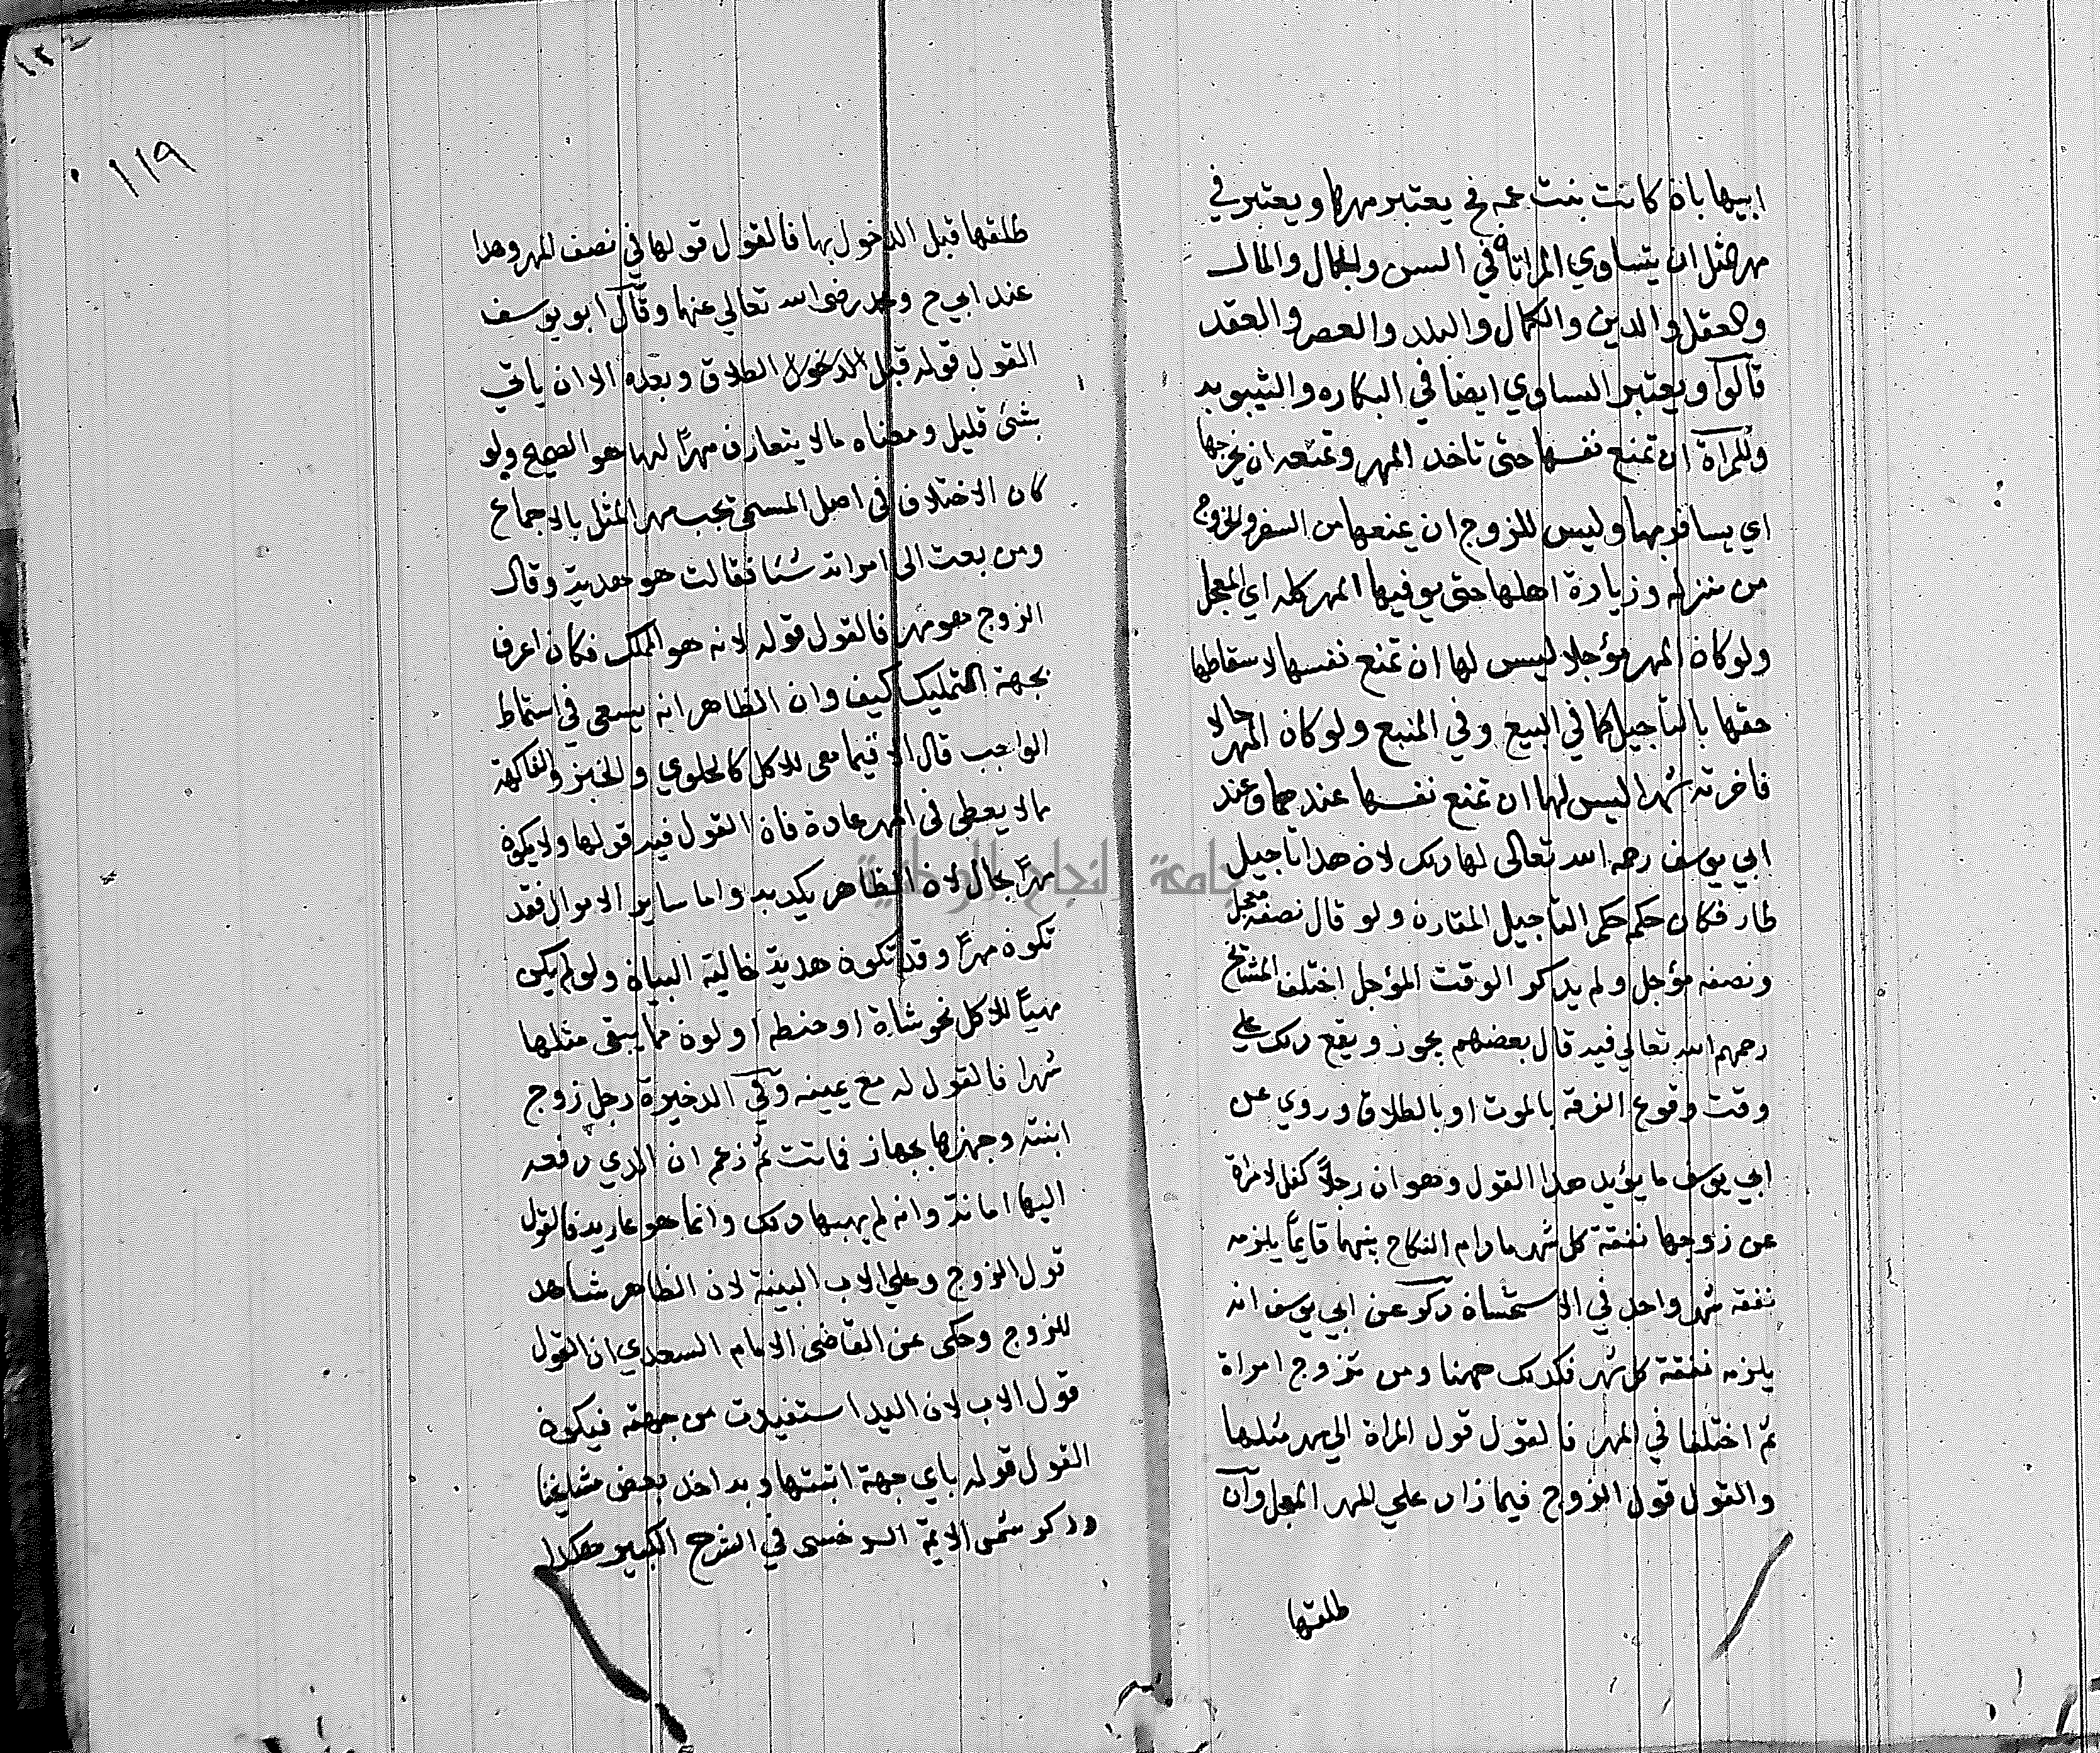 ابيها بان كانت بنت عمه فح يعتبر مهرها ويعتبر في
مهر مثل ان يتساوي المراتان في السن والجمال والمال
والعقل والدين والكمال والبلد والعصر والعقد
قالوا ويعتبر التساوي ايضا في البكاره والثيوبه
وللمراة ان تمنع نفسها حتى تاخد المهر وتمنعه ان يخرجها
اي يسافر بها وليس للزوج ان يمنعها من السفر والخروج
من منزله وزيارة اهلها حتى يوفيها المهر كله اي المعجل
ولو كان المهر مؤجلا ليس لها ان تمنع نفسها لاسقاطها
حقها بالتاجيل كما في البيع وفي المنبع ولو كان المهر حالا
فاخرته شهرا ليس لها ان تمنع نفسها عندهما وعند
ابي يوسف رحمه الله تعالى لها دلك لان هدا تاجيل
طار فكان حكمه حكم التاجيل المقارن ولو قال نصفه معجل
ونصفه مؤجل ولم يدكر الوقت المؤجل اختلف المشايخ
رحمهم الله تعالي فيه قال بعضهم يجوز ويقع دلك علي
وقت وقوع الفرقة بالموت او بالطلاق وروي عن
ابي يوسف ما يؤيد هدا القول وهو ان رجلاً كفل لامراة
عن زوجها نفقة كل شهر مادام النكاح بينهما قايماً يلزمه
نفقه شهر واحد في الاستحسان دكر عن ابي يوسف انه
يلزمه نفقة كل شهر فكدلك ههنا ومن تزوج امراة
ثم اختلفا في المهر فالقول قول المراة الي مهر مثلها
والقول قول الزوج فيما زاد علي المهر المعجل وان
طلقها
١١٩
طلقها قبل الدخول بها فالقول قولها في نصف المهر وهدا
عند ابي ح ومحمد رضى الله تعالي عنهما وقال ابو يوسف
القول قوله قبل الدخول الطلاق وبعده الا ان ياتي
بشئ قليل ومعناه مالا يتعارف مهراً لها هو الصحيح ولو
كان الاختلاف في اصل المسمى يجب مهر المثل بالاجماع
ومن بعت الى امراته شيئا فقالت هو هدية وقال
الزوج هو مهر فالقول قوله لانه هو المملك فكان اعرف
بجهة التمليك كيف وان الظاهر انه يسعي في اسقاط
الواجب قال الا فيما هي للاكل كالحلوي والخبز والفاكهة
مالا يعطي في المهر عادة فان القول فيه قولها ولا يكون
مهراً بحال لان الظاهر يكدبه واما ساير الاموال فقد
تكون مهراً وقد تكون هدية خالية البيان ولو لم يكن
مهيأ للاكل نحو شاة او حنطه او لون مما يبقى مثلها
شهرا فالقول له مع يمينه وفي الدخيرة رجل زوج
ابنته وجهزها بجهاز فماتت ثم زعم ان الدي دفعه
اليها امانة وانه لم يهبها دلك وانما هو عارية فالقول
قول الزوج وعلي الاب البينة لان الظاهر شاهد
للزوج وحكى عن القاضي الامام السعدي ان القول
قول الاب لان اليد استفيدت من جهته فيكون
القول قوله باي جهة اثبتها وبه اخد بعض مشايخنا
ودكر شمس الايمة السرخسى في الشرح الكبير هكدا
جامعة النجاح الوطنية